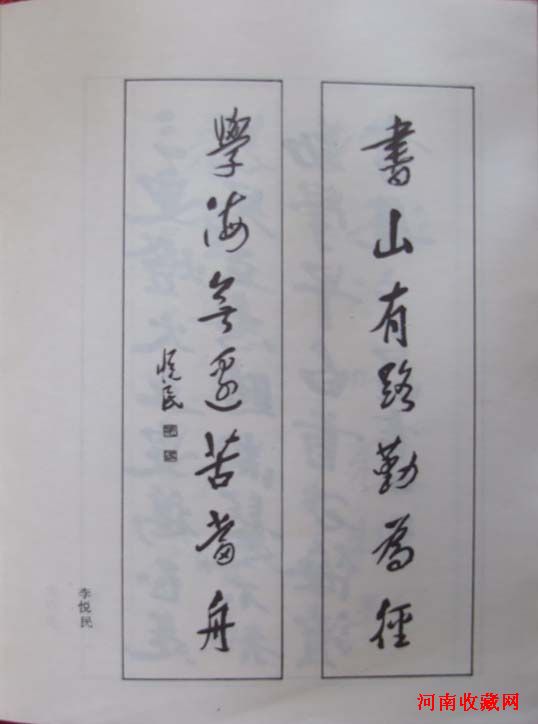 書山有路勤為徑
學海無邊苦當舟
悦民
李悦民
河南收藏网